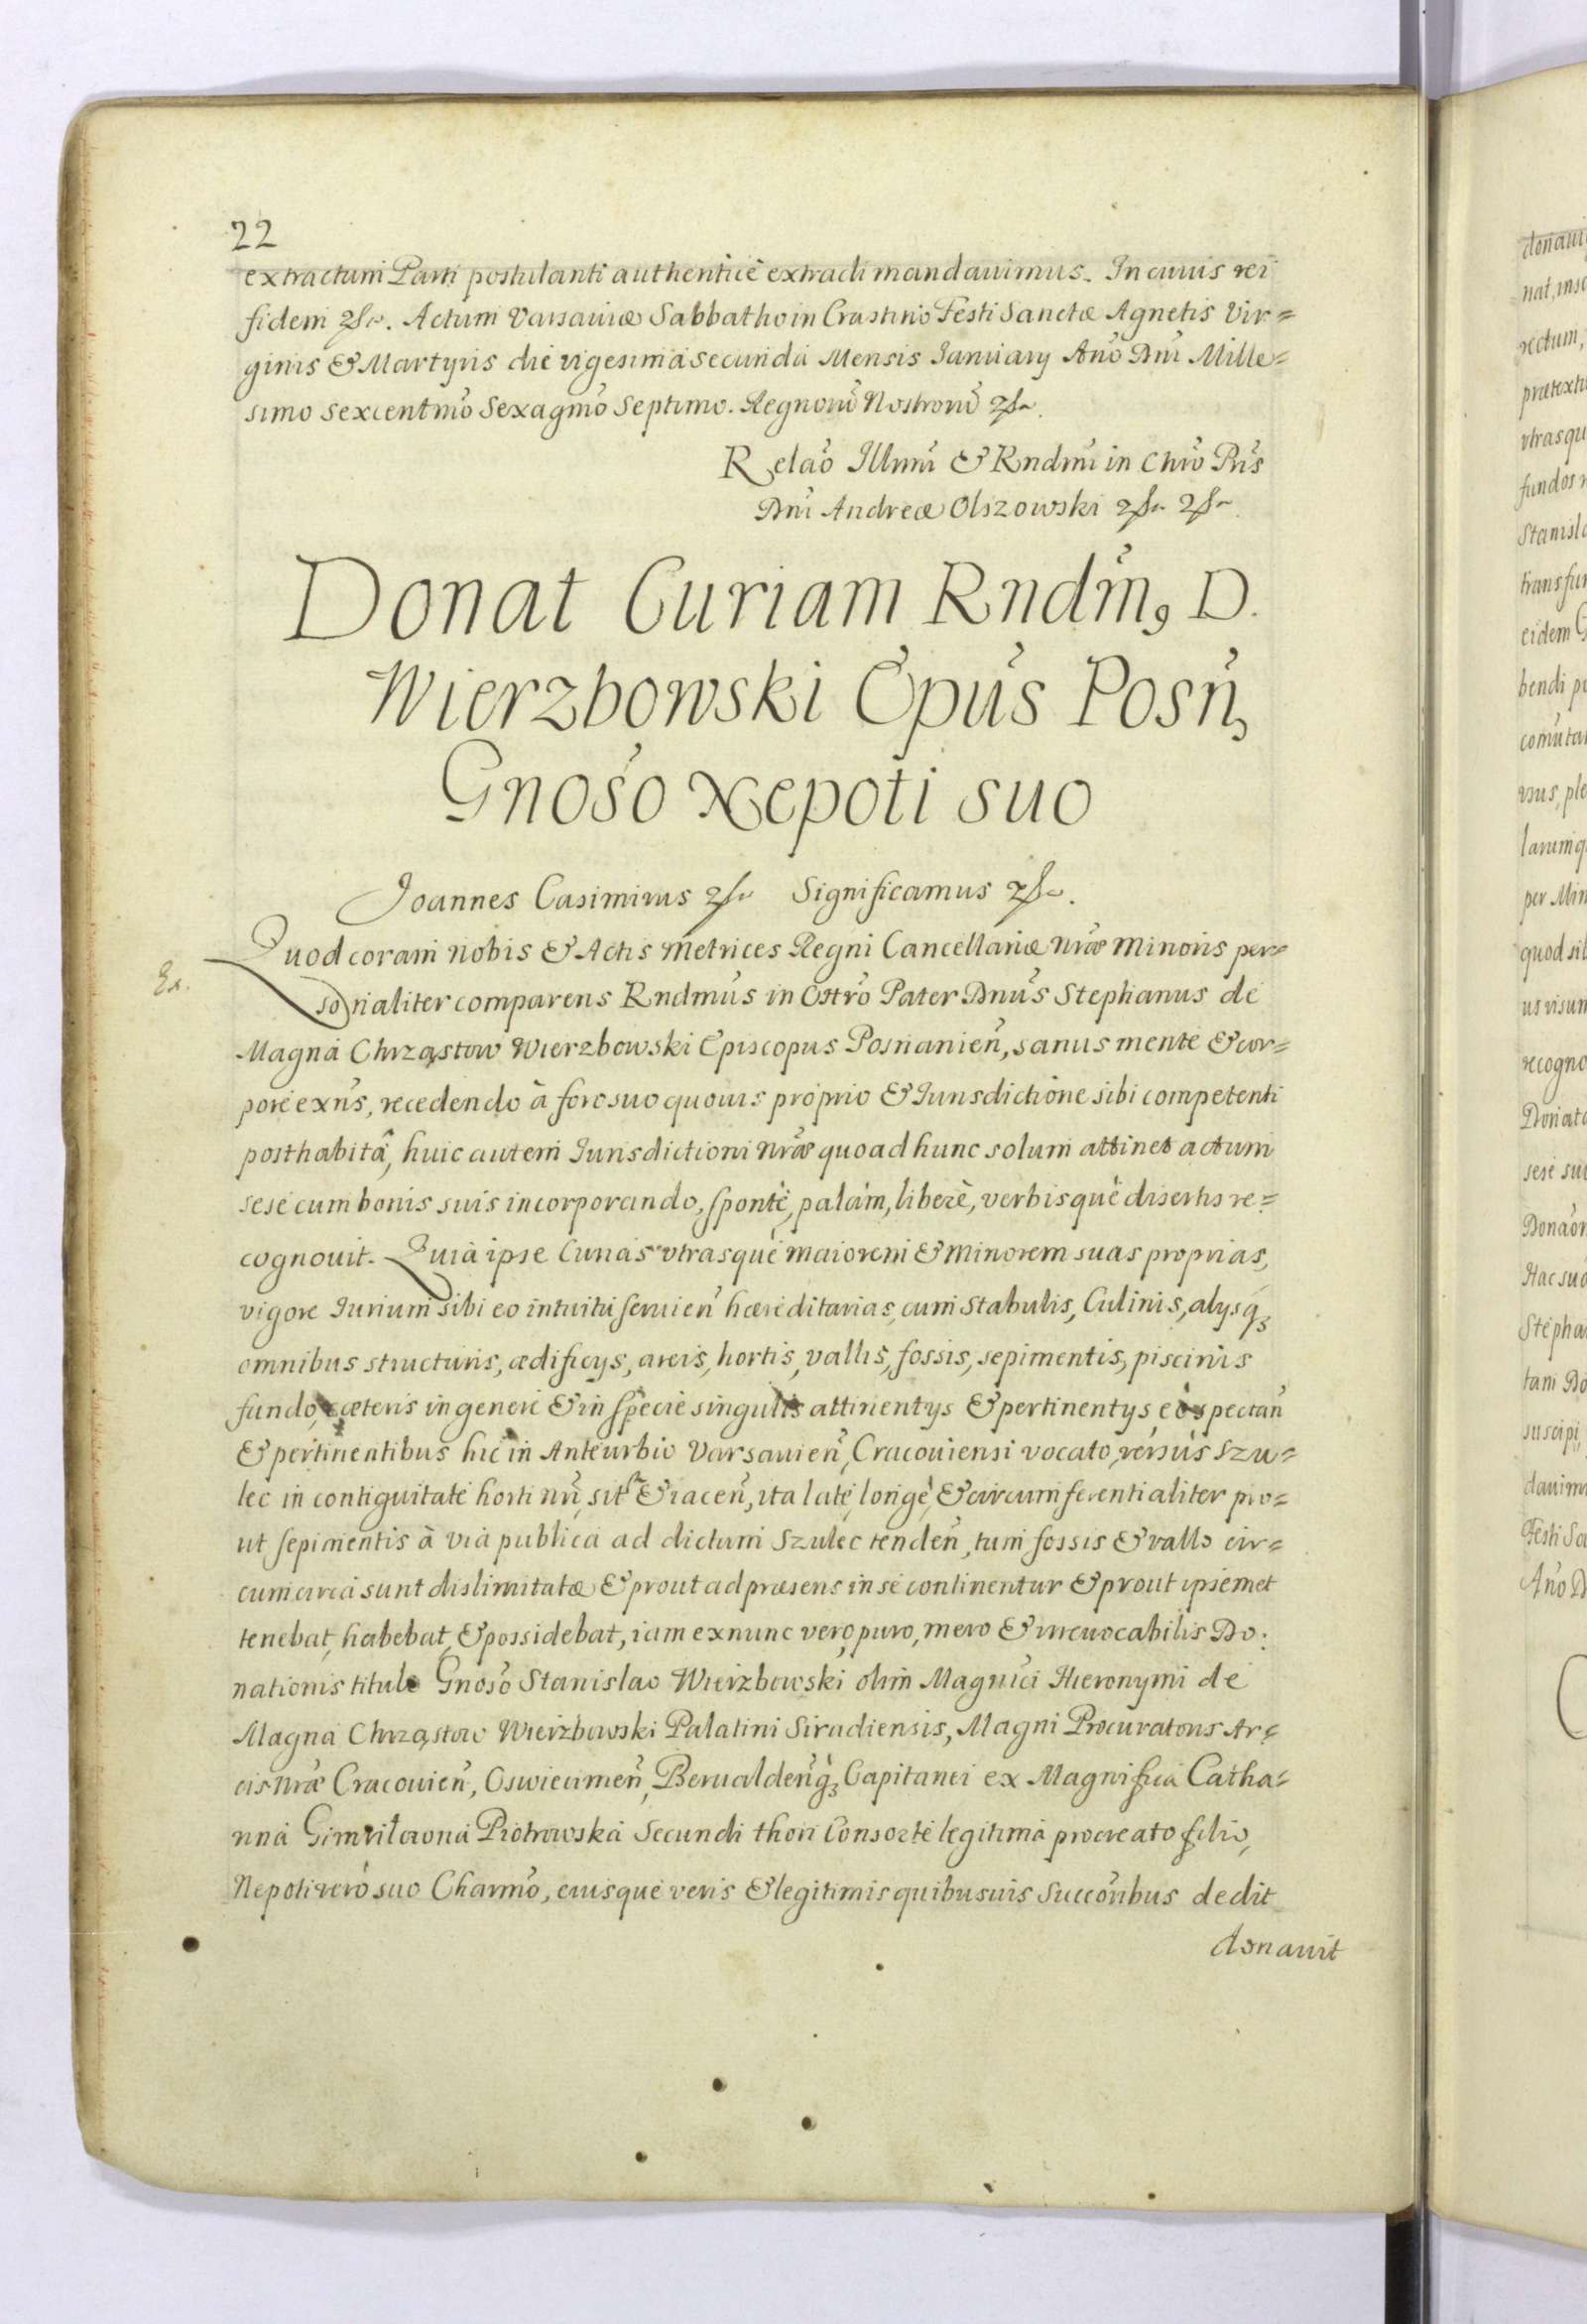 22
extractum Parti postulanti authenticè extradi mandauimus. In cuius rei
fidem etc. Actum Varsauiæ Sabbatho in Crastino Festi Sanctæ Agnetis Vir=
ginis & Martyris die vigesima secunda Mensis Ianuarij Año Dñi Mille=
simo sexcentmõ Sexagmõ Septimo. Regnorũ Nostrorũ etc.
Relaõ Illmi & Rndmi in Chrõ Pris
Dñi Andreæ Olszowski etc etc
Donat Curiam Rndm9 D.
Wierzbowski Epũs Posñ,
Gnoso Nepoti suo
Joannes Casimirus etc Significamus etc.
Quod coram nobis & Actis Metrices Regni Cancellariæ nræ Minoris per=
Ex.
sonaliter comparens Rndmus in Chrõ Pater Dnus Stephanus de
Magna Chrząstow Wierzbowski Episcopus Posnanieñ, sanus mente & cor=
pore exñs, recedendo à foro suo quouis proprio & Iurisdictione sibi competenti
posthabitâ, huic autem Iurisdictioni nræ quoad hunc solum attinet actum
sese cum bonis suis incorporando, sponte, palàm, liberè, verbisquè disertis re=
cognouit. Quia ipse Curias vtrasquè maiorem & Minorem suas proprias,
vigore Iurium sibi eo intuitu seruieñ hæreditarias, cum Stabulis, Culinis, alysq3
omnibus structuris, ædificys, areis, hortis, vallis, fossis, sepimentis, piscinis
fundo, cæteris in genere & in specie singulis attinentys & pertinentys eò spectañ
& pertinentibus hic in Anteurbio Varsauieñ, Cracouiensi vocato, versus Szu=
lec in contiguitate horti nri, sit & iaceñ, ita late, longè, & circumferentialiter pro=
ut sepimentis à via publica ad dictum Szulec tendeñ, tum fossis & vallo cir=
cumcirca sunt dislimitatæ & prout ad præsens in se continentur & prout ipsemet
tenebat, habebat, & possidebat, iam exnunc vero, puro, mero & irreuocabilis Do:
nationis titulo Gnoso Stanislao Wierzbowski olim Magnici Hieronymi de
Magna Chrząstow Wierzbowski Palatini Siradiensis, Magni Procuratoris Ar=
cis nræ Cracouieñ, Oswiecimeñ, Berualdeñq3 Capitanei ex Magnifica Catha=
rina Piotrowska Secundi thori Consorte legitima procreato filio,
Nepoti verò suo Charmõ, eiusque veris & legitimis quibusuis Succoribus dedit
donauit